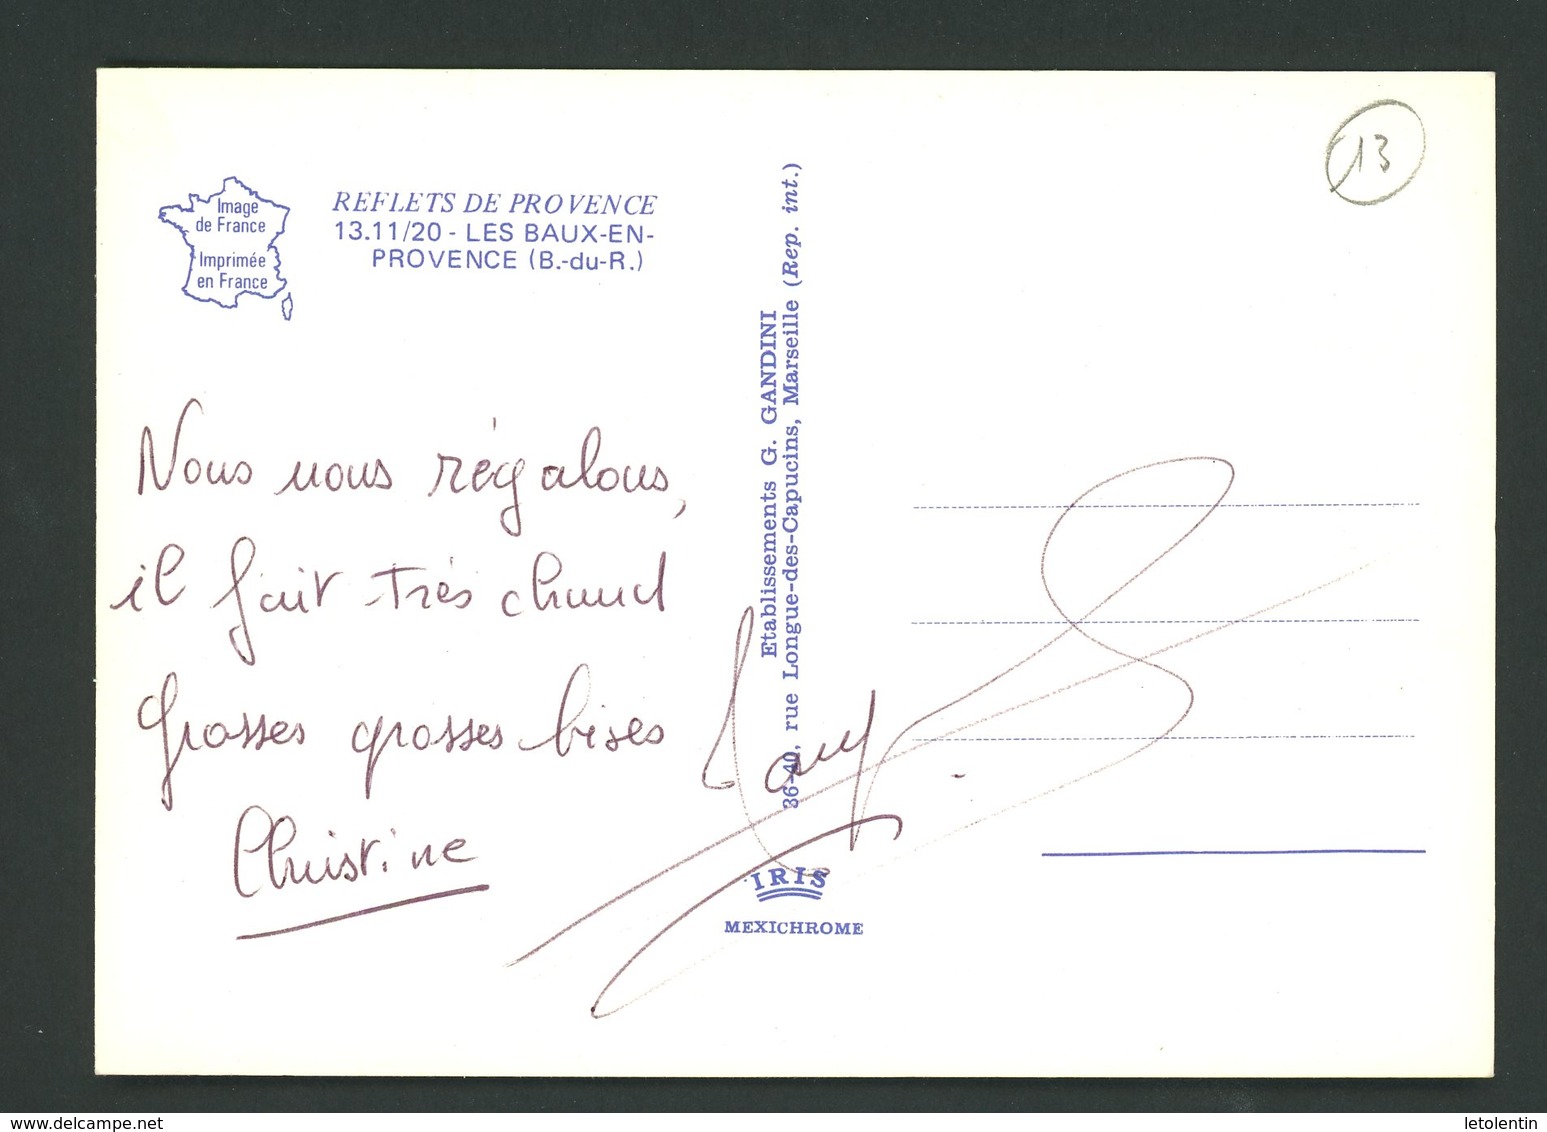 13
Image
de France
Imprimée
en France
REFLETS DE PROVENCE
13.11/20 - LES BAUX-EN-
PROVENCE (B.-du-R.)
Etablissements G. GANDINI
36-40, rue Longue-des-Capucins, Marseille (Rep. int.)
Nous nous régalons,
il fait très chaud
Grosses grosses bises
Christine
IRIS
MEXICHROME
www.delcampe.net
letolentin